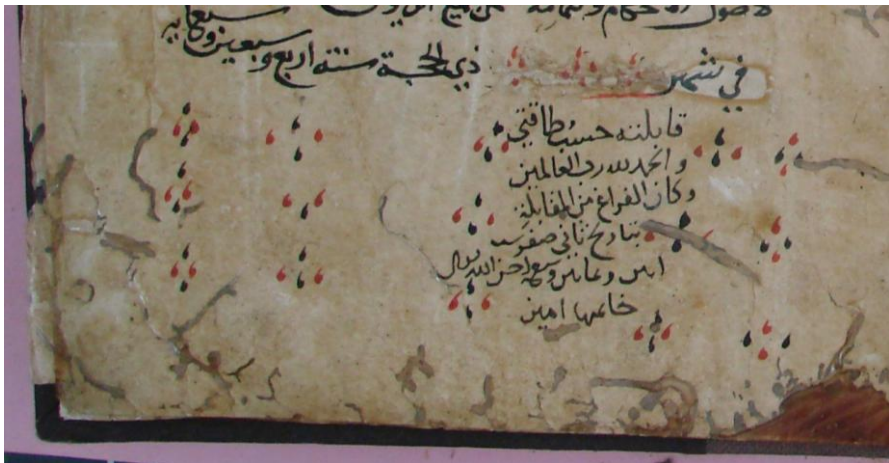 في شهر ذي الحجة سنة اربع وسبعين وسبعمايه
قابلته حسب طاقتي
والحمد لله رب العالمين
وكان الفراغ من المقابلة
بتاريخ ثاني صفر سنه
اثنين وثمانين وسبع احسن الله تعالى
خاتمتها امين